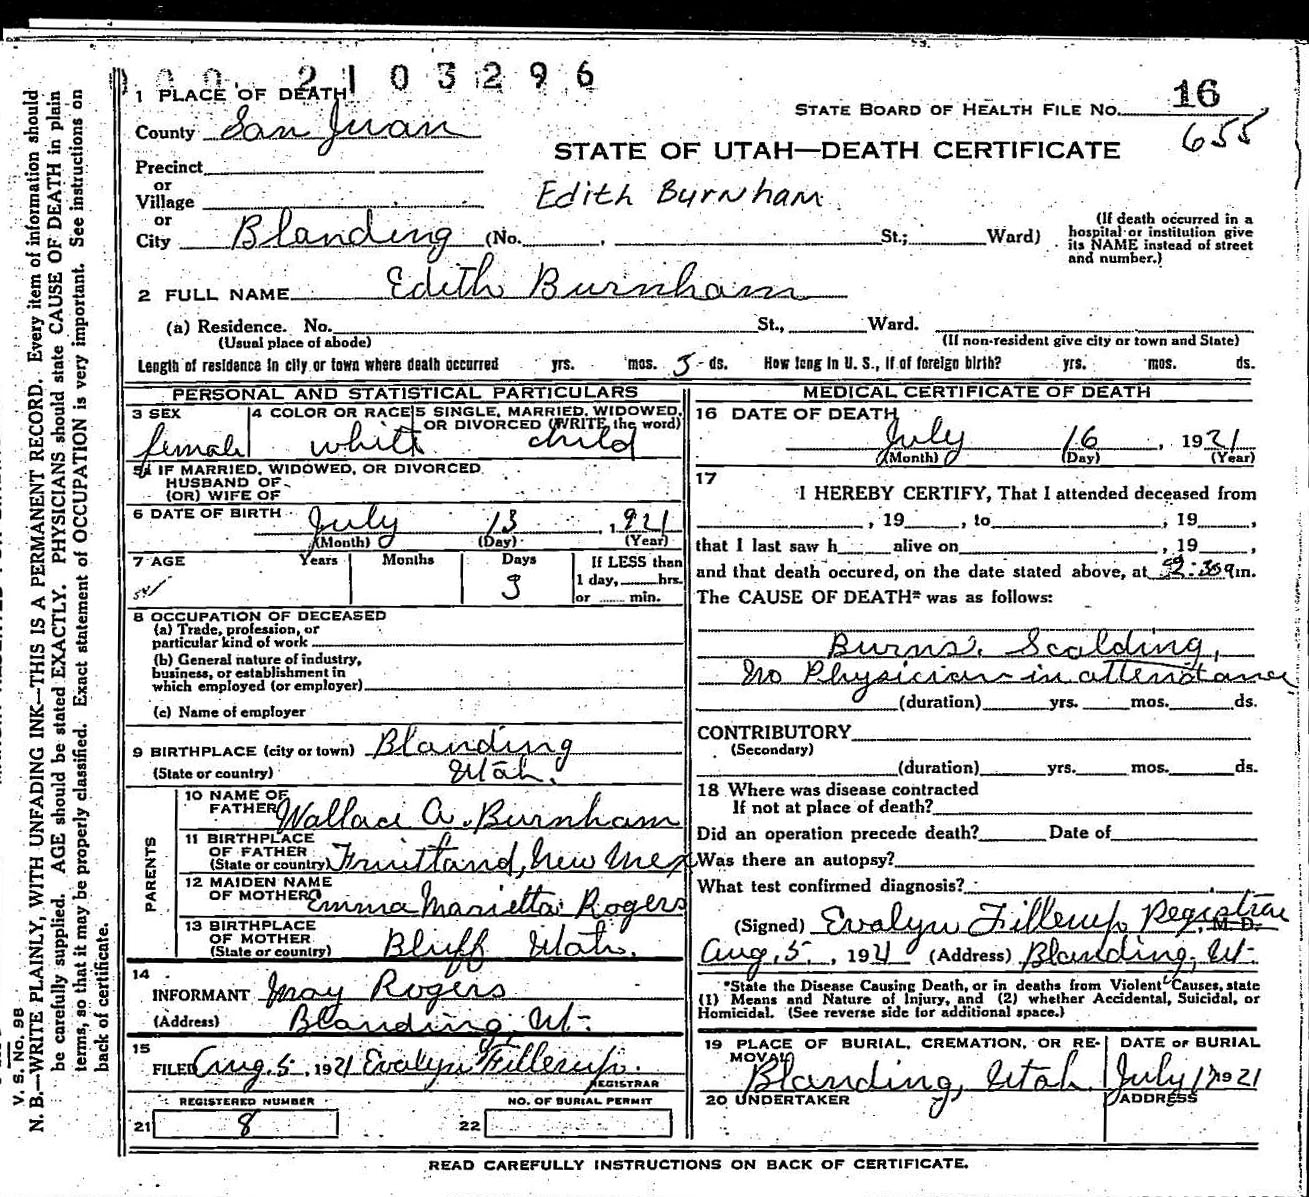 2 1 0 3 2 9 6
1 PLACE OF DEATH
STATE BOARD OF HEALTH FILE NO. 16
655
County San Juan
STATE OF UTAH—DEATH CERTIFICATE
Precinct
or
Village
Edith Burnham
or
City Blanding (No. , St.; Ward)
(If death occurred in a
hospital or institution give
its NAME instead of street
and number.)
2 FULL NAME Edith Burnham
(a) Residence. No. St., Ward.
(Usual place of abode) (If non-resident give city or town and State)
Length of residence in city or town where death occurred yrs. mos. 3 ds. How long in U. S., if of foreign birth? yrs. mos. ds.
PERSONAL AND STATISTICAL PARTICULARS
3 SEX
female
4 COLOR OR RACE
white
5 SINGLE, MARRIED, WIDOWED,
OR DIVORCED (WRITE the word)
child
5a IF MARRIED, WIDOWED, OR DIVORCED
HUSBAND OF
(OR) WIFE OF
6 DATE OF BIRTH July 13 , 1921
(Month) (Day) (Year)
7 AGE Years Months Days If LESS than
1 day, hrs.
or min.
3
8 OCCUPATION OF DECEASED
(a) Trade, profession, or
particular kind of work
(b) General nature of industry,
business, or establishment in
which employed (or employer)
(c) Name of employer
9 BIRTHPLACE (city or town) Blanding
(State or country) Utah.
PARENTS
10 NAME OF
FATHER Wallace A. Burnham
11 BIRTHPLACE
OF FATHER
(State or country) Fruitland, New Mex
12 MAIDEN NAME
OF MOTHER Emma Marietta Rogers
13 BIRTHPLACE
OF MOTHER
(State or country) Bluff Utah.
14
INFORMANT May Rogers
(Address) Blanding, Ut.
15
FILED Aug. 5, 1921 Evalyn Fillerup.
REGISTRAR
REGISTERED NUMBER
21 8
NO. OF BURIAL PERMIT
22
MEDICAL CERTIFICATE OF DEATH
16 DATE OF DEATH
July 16 , 1921
(Month) (Day) (Year)
17
I HEREBY CERTIFY, That I attended deceased from
, 19 , to , 19 ,
that I last saw h alive on , 19 ,
and that death occured, on the date stated above, at m.
The CAUSE OF DEATH* was as follows:
Burns. Scalding,
No Physician in attendance
(duration) yrs. mos. ds.
CONTRIBUTORY
(Secondary)
(duration) yrs. mos. ds.
18 Where was disease contracted
If not at place of death?
Did an operation precede death? Date of
Was there an autopsy?
What test confirmed diagnosis?
(Signed) Evalyn Fillerup Registrar, M. D.
Aug. 5, 1921 (Address) Blanding, Ut.
*State the Disease Causing Death, or in deaths from Violent Causes, state
(1) Means and Nature of Injury, and (2) whether Accidental, Suicidal, or
Homicidal. (See reverse side for additional space.)
19 PLACE OF BURIAL, CREMATION, OR RE-
MOVAL
Blanding, Utah
DATE OF BURIAL
July 17 1921
20 UNDERTAKER
ADDRESS
READ CAREFULLY INSTRUCTIONS ON BACK OF CERTIFICATE.
V. S. No. 98
N. B.—WRITE PLAINLY, WITH UNFADING INK—THIS IS A PERMANENT RECORD. Every item of information should
be carefully supplied. AGE should be stated EXACTLY. PHYSICIANS should state CAUSE OF DEATH in plain
terms, so that it may be properly classified. Exact statement of OCCUPATION is very important. See instructions on
back of certificate.